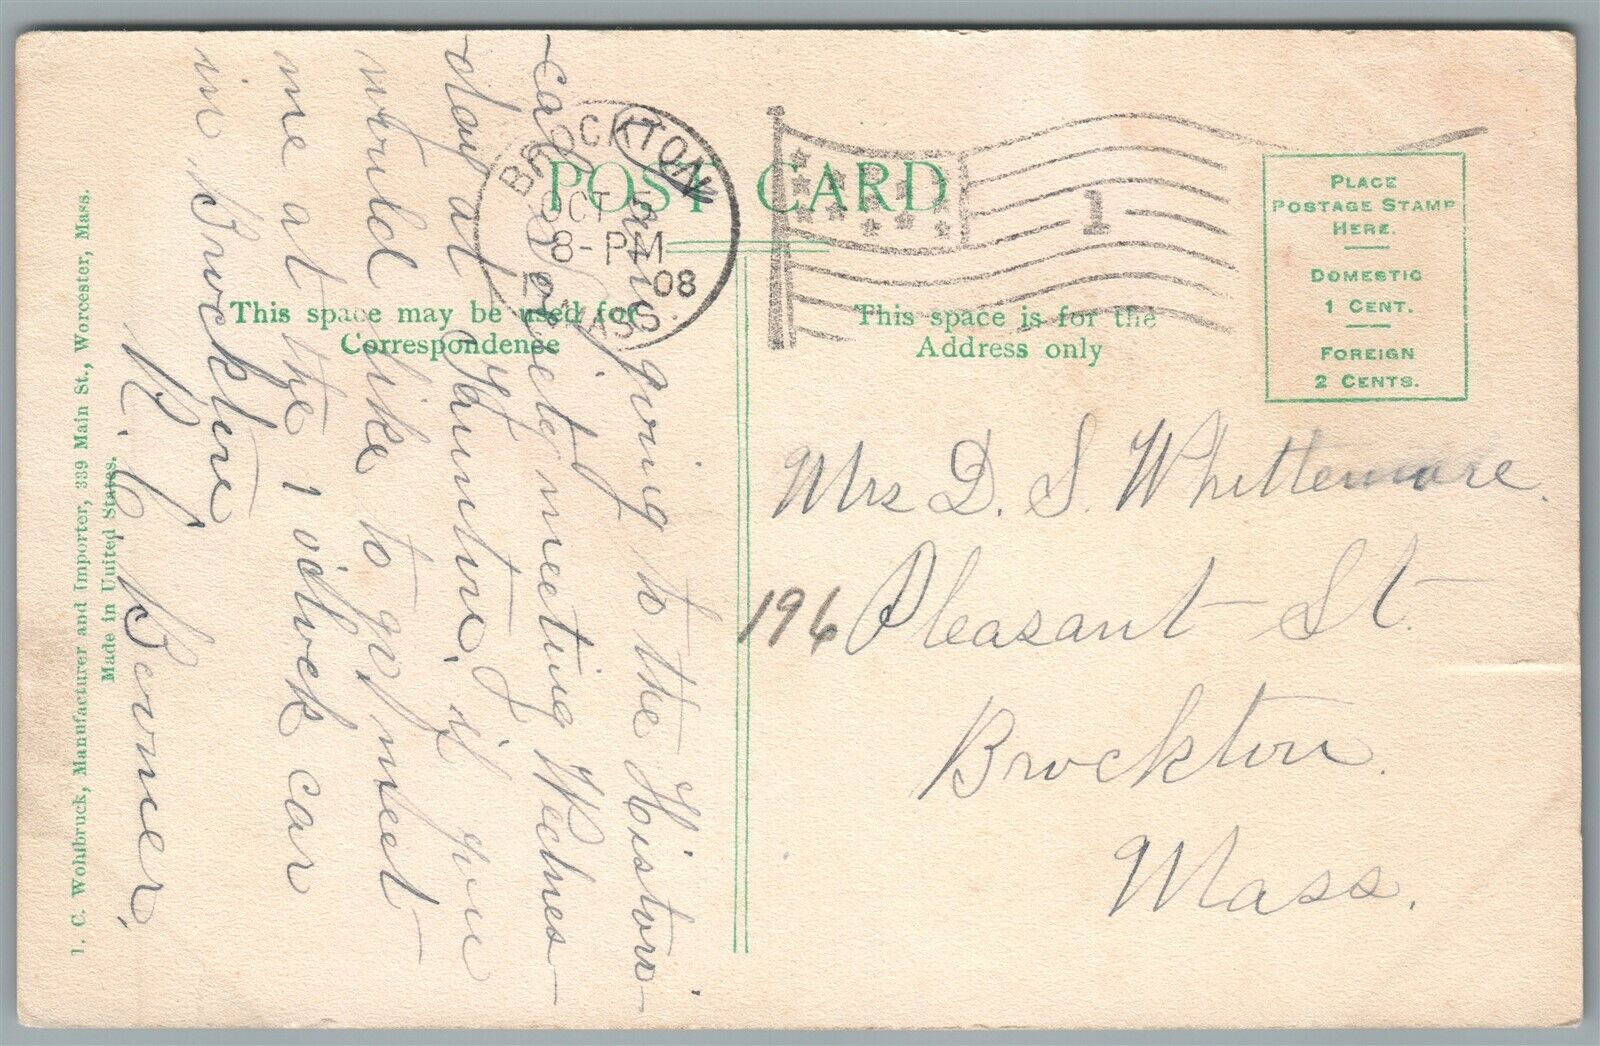 POST CARD
This space may be used for
Correspondence
This space is for the
Address only
PLACE
POSTAGE STAMP
HERE.
DOMESTIC
1 CENT.
FOREIGN
2 CENTS.
BROCKTON
OCT
8-PM
08
MASS.
1
Mrs D. S. Whittemore.
196 Pleasant St.
Brockton.
Mass.
going to the Histori-
cal Society meeting Wednes-
day at Taunton, if you
would like to go, meet
me at the 1 o'clock car
in Brockton
R. C. Bonner.
I. C. Wohlbruck, Manufacturer and Importer, 339 Main St., Worcester, Mass.
Made in United States.